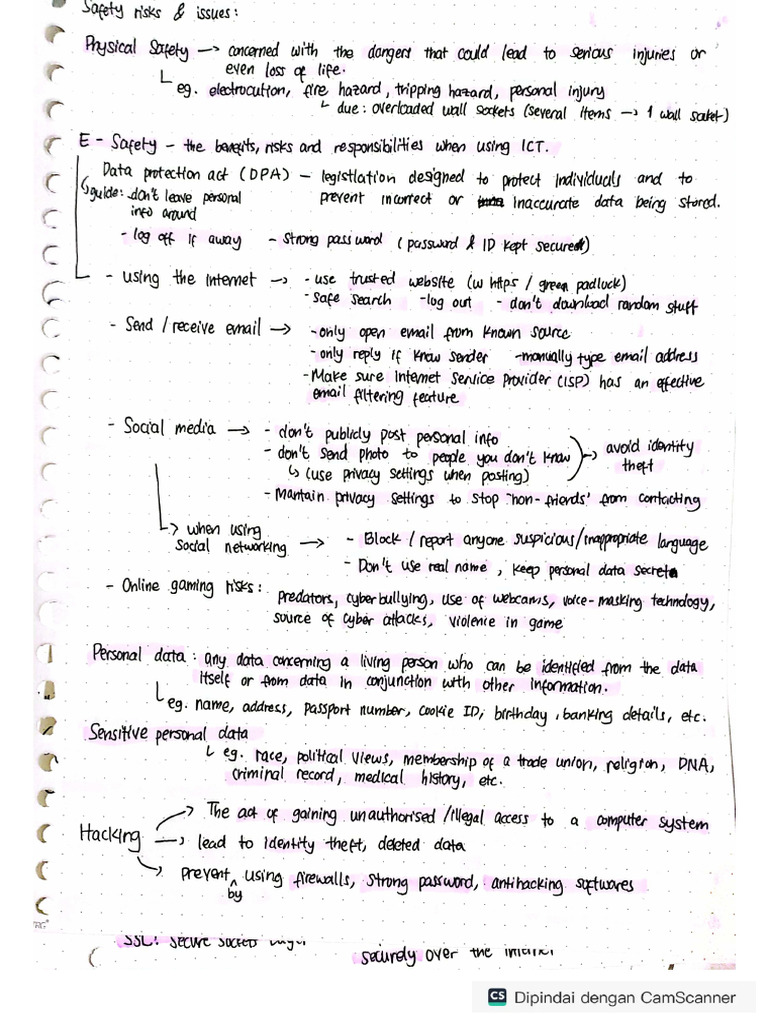 Safety risks & issues:
Physical Safety → concerned with the dangers that could lead to serious injuries or
even loss of life.
eg. electrocution, fire hazard, tripping hazard, personal injury
due: overloaded wall sockets (several items → 1 wall socket)
E - Safety - the benefits, risks and responsibilities when using ICT.
Data protection act (DPA) - legistlation designed to protect individuals and to
prevent incorrect or inaccurate data being stored.
guide: -don't leave personal
info around
- log off if away - strong password (password & ID kept secured)
- using the internet → - use trusted website (w https / green padlock)
- safe search - log out - don't download random stuff
- Send / receive email → - only open email from known source
- only reply if know sender - manually type email address
- Make sure Internet Service Provider (ISP) has an effective
email filtering feature
- Social media → - don't publicly post personal info
- don't send photo to people you don't know
(use privacy settings when posting)
→ avoid identity
theft
- Mantain privacy settings to stop "non-friends" from contacting
→ when using
social networking → - Block / report anyone suspicious/inappropriate language
- Don't use real name, keep personal data secret
- Online gaming risks: predators, cyberbullying, use of webcams, voice-masking technology,
source of cyber attacks, violence in game
Personal data: any data concerning a living person who can be identified from the data
itself or from data in conjunction with other information.
eg. name, address, passport number, cookie ID, birthday, banking details, etc.
Sensitive personal data
eg. race, political views, membership of a trade union, religion, DNA,
criminal record, medical history, etc.
Hacking → The act of gaining unauthorised /illegal access to a computer system
→ lead to identity theft, deleted data
→ prevent by using firewalls, strong password, antihacking softwares
SSL: Secure Sockets
securely over the internet
CS Dipindai dengan CamScanner